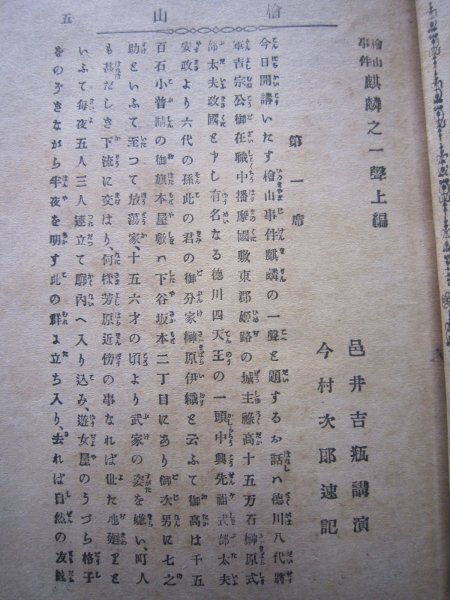 五　山檜
檜山事件 麒麟之一聲上編
邑井吉瓶講演
今村次郎速記
第一席
今日開講いたす檜山事件麒麟の一聲と題するお話ハ德川八代將
軍吉宗公御在職中播摩國敷東郡姫路の城主祿高十五万石榊原式
部太夫政國と申し有名なる德川四天王の一頭中興先祖式部太夫
安政より六代の孫此の君の御分家榊原伊織と云ふて御高は千五
百石小普請の御旗本屋敷ハ下谷坂本二丁目にあり御次男に七之
助といふて至つて放蕩家、十五六才の頃より武家の姿を嫌い、町人
も甚だしき下流に交はり、何樣芳原近傍の事なれば世た地廻りと
いふて毎夜五人三人連立て廓內へ入り込み、遊女屋のうづら格子
をのぞきながら半夜を明す此の群よ立ち入り、去れば自然の友